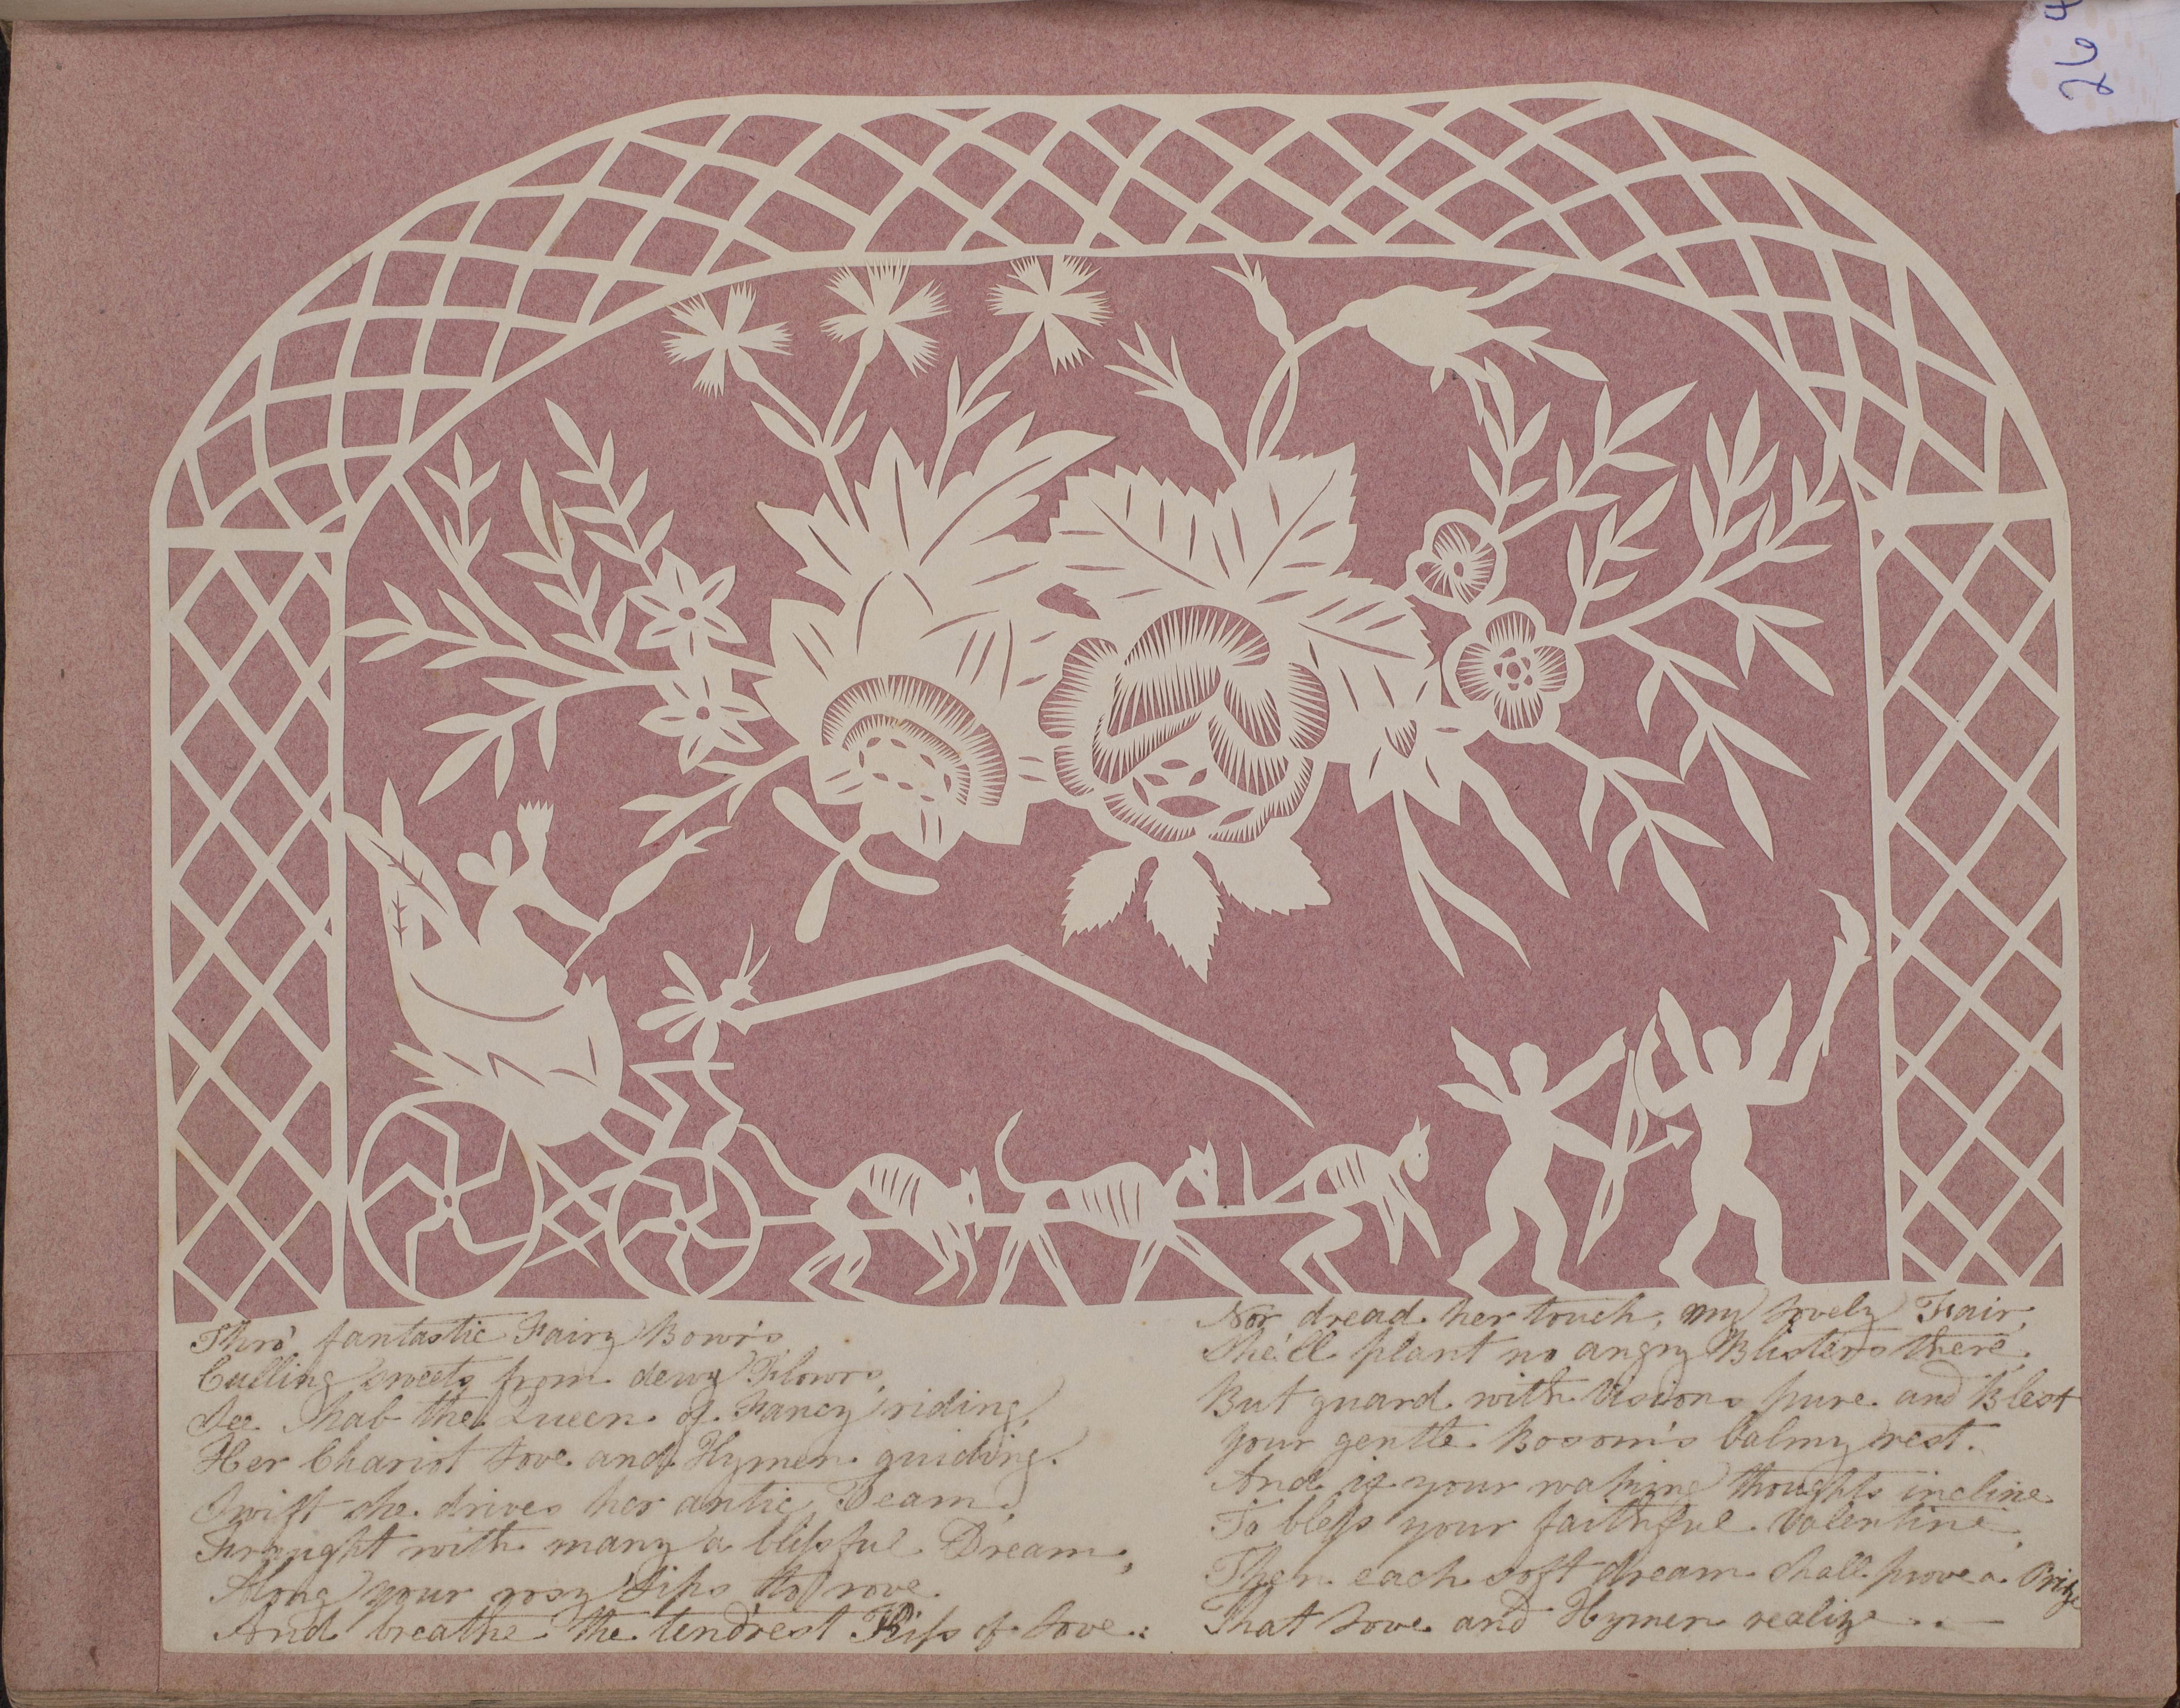 264
Thro' fantastic Fairy Bow'rs
Culling sweets from dewy Flowers,
See Mab the Queen of Fancy riding,
Her Chariot Love and Hymen guiding.
Swift she drives her antic Team,
Fraught with many a blissful Dream,
Along your rosy Lips to rove.
And breathe the tend'rest Kiss of Love.:
Nor dread her touch, my lovely Fair,
She'll plant no angry Blisters there,
But guard with Visions pure and Blest
Your gentle Bosom's balmy rest.
And if your waking thoughts incline
To bless your faithful Valentine,
Then each soft dream shall prove a Prize
That Love and Hymen realize . . —